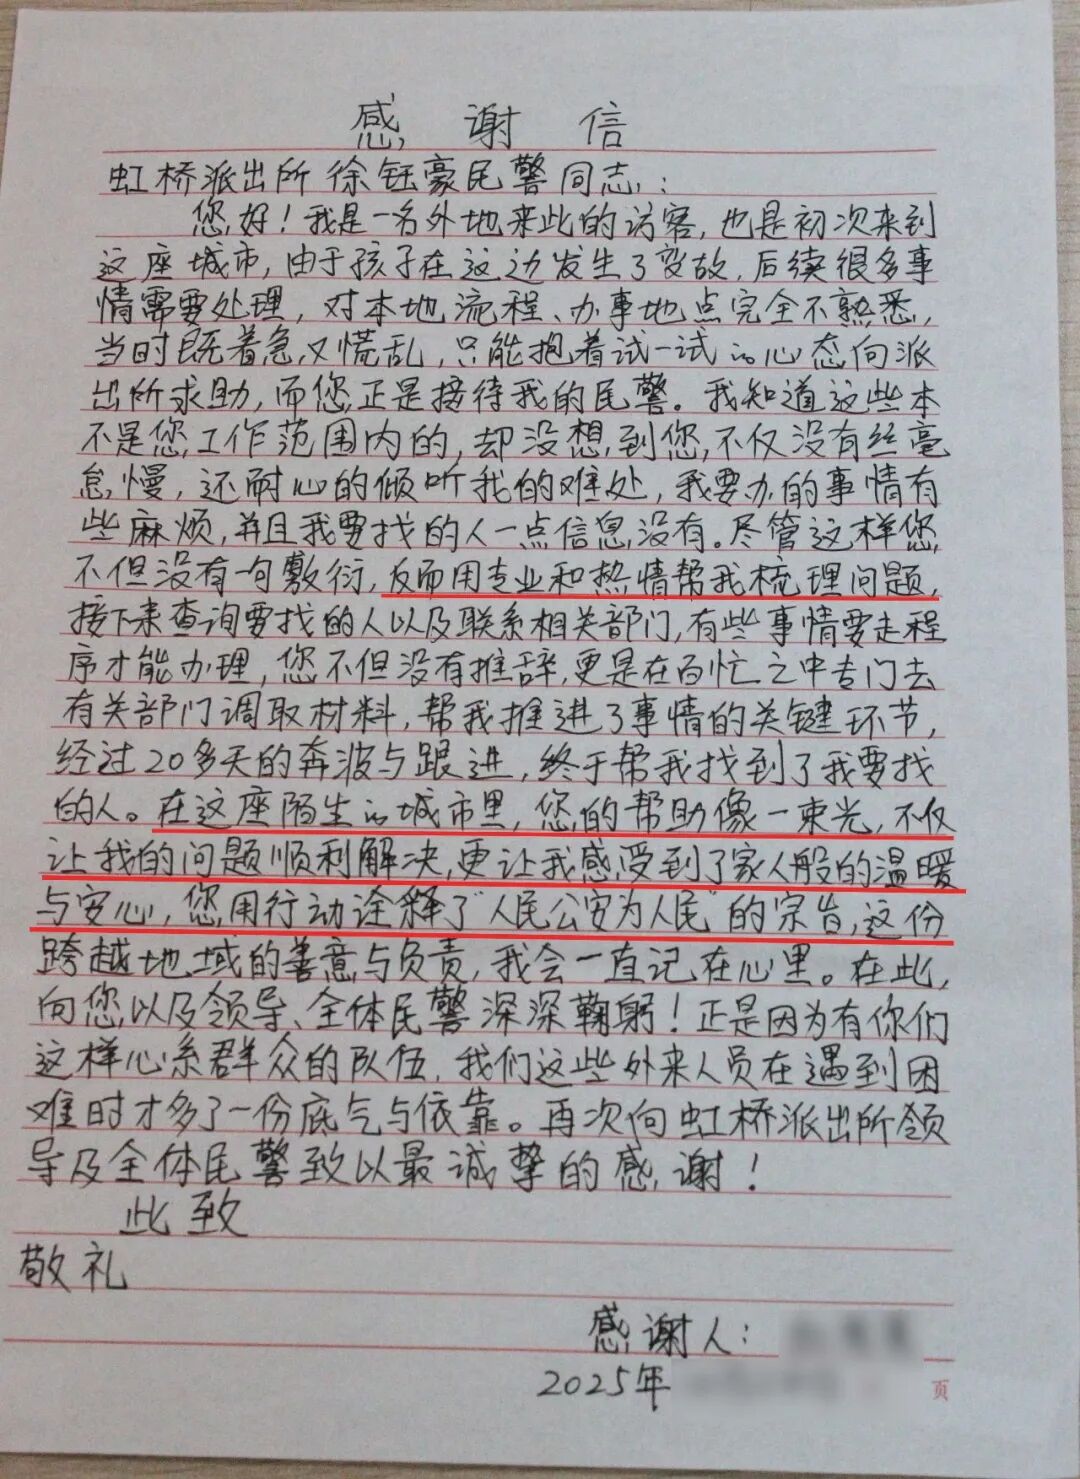 感谢信
虹桥派出所徐钰豪民警同志：
您好！我是一名外地来此的访客，也是初次来到
这座城市，由于孩子在这边发生了变故，后续很多事
情需要处理，对本地流程、办事地点完全不熟悉，
当时既着急又慌乱，只能抱着试一试的心态向派
出所求助，而您正是接待我的民警。我知道这些本
不是您工作范围内的，却没想到您不仅没有丝毫
怠慢，还耐心的倾听我的难处，我要办的事情有
些麻烦，并且我要找的人一点信息没有。尽管这样您
不但没有一句敷衍，反而用专业和热情帮我梳理问题，
接下来查询要找的人以及联系相关部门，有些事情要走程
序才能办理，您不但没有推辞，更是在百忙之中专门去
有关部门调取材料，帮我推进了事情的关键环节，
经过20多天的奔波与跟进，终于帮我找到了我要找
的人。在这座陌生的城市里，您的帮助像一束光，不仅
让我的问题顺利解决，更让我感受到了家人般的温暖
与安心，您用行动诠释了“人民公安为人民”的宗旨，这份
跨越地域的善意与负责，我会一直记在心里。在此，
向您以及领导、全体民警深深鞠躬！正是因为有你们
这样心系群众的队伍，我们这些外来人员在遇到困
难时才多了一份底气与依靠。再次向虹桥派出所领
导及全体民警致以最诚挚的感谢！
此致
敬礼
感谢人：
2025年
页